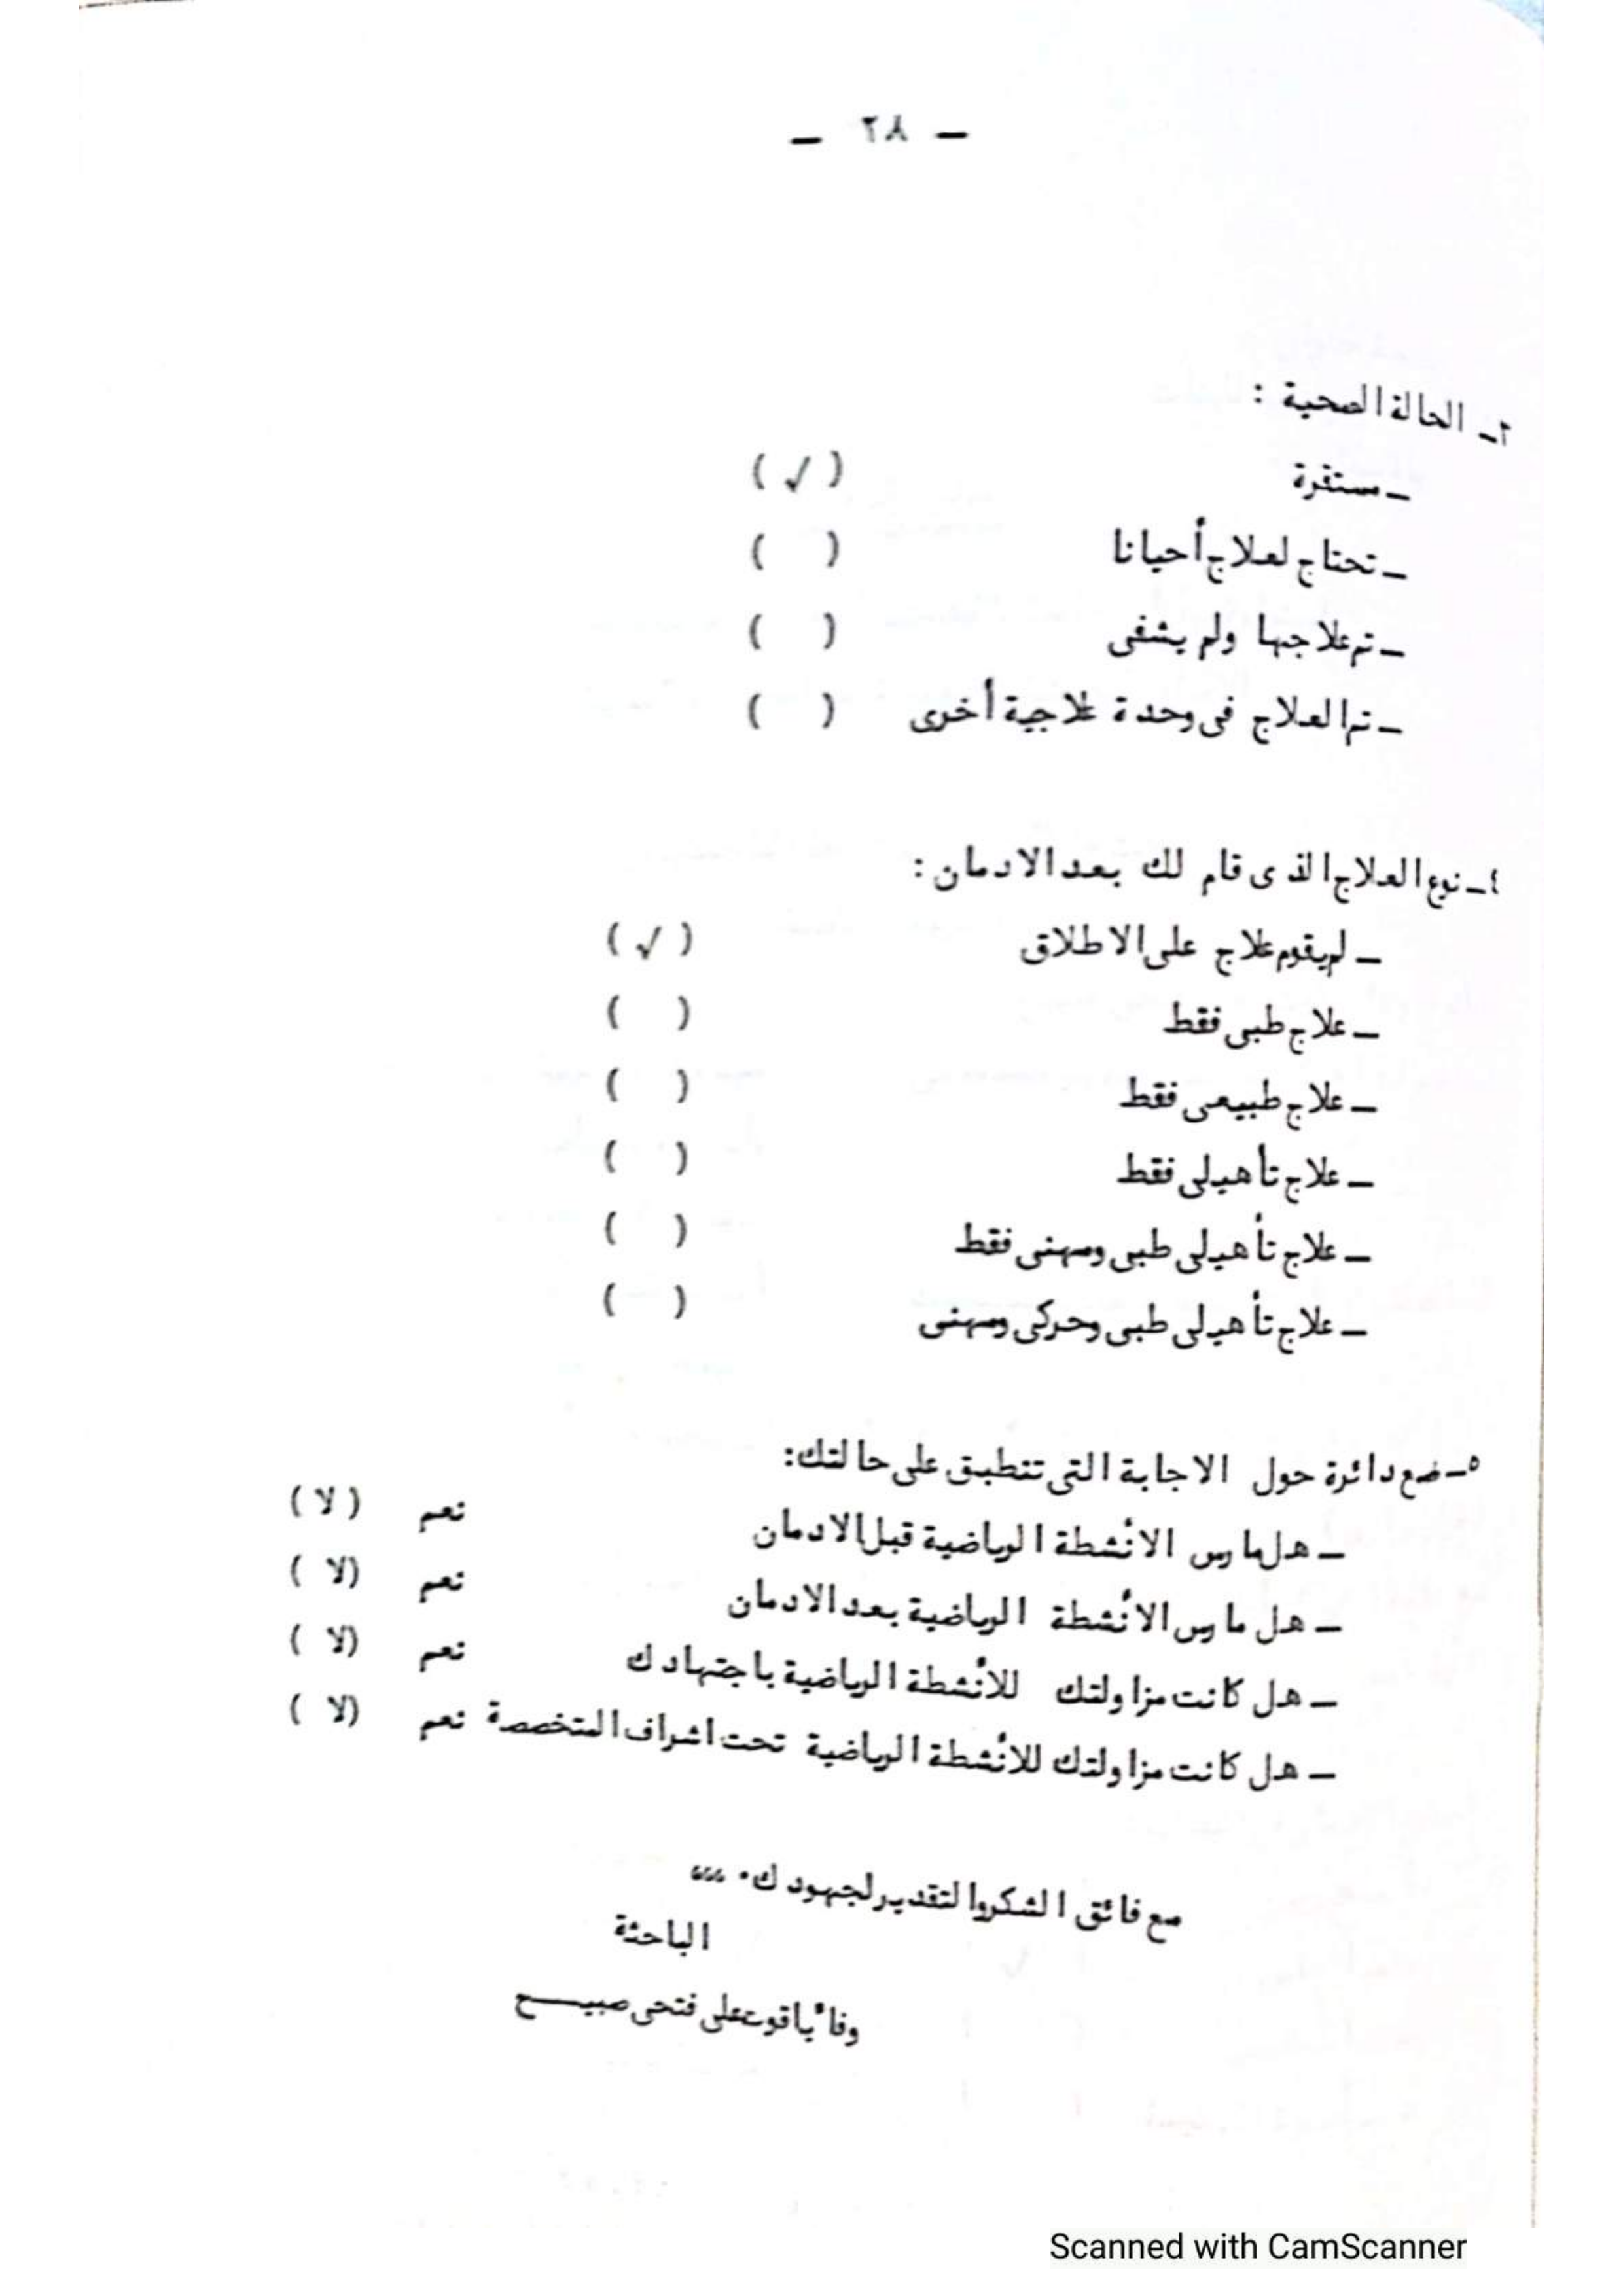 — ٢٨ —
٢ـ الحالة الصحية :
ـ مستقرة ( √ )
ـ تحتاج لعلاج أحيانا ( )
ـ تم علاجها ولم يشفى ( )
ـ تم العلاج فى وحدة علاجية أخرى ( )
٤ـ نوع العلاج الذى قام لك بعد الادمان :
ـ لم يقوم علاج على الاطلاق ( √ )
ـ علاج طبى فقط ( )
ـ علاج طبيعى فقط ( )
ـ علاج تأهيلى فقط ( )
ـ علاج تأهيلى طبى ومهنى فقط ( )
ـ علاج تأهيلى طبى وحركى ومهنى ( )
٥ـ ضع دائرة حول الاجابة التى تنطبق على حالتك:
ـ هل مارس الأنشطة الرياضية قبل الادمان نعم ( لا )
ـ هل مارس الأنشطة الرياضية بعد الادمان نعم ( لا )
ـ هل كانت مزاولتك للأنشطة الرياضية باجتهادك نعم ( لا )
ـ هل كانت مزاولتك للأنشطة الرياضية تحت اشراف المتخصصة نعم ( لا )
مع فائق الشكر والتقدير لجهودك .
الباحثة
وفاء ياقوت على فتحى صبيـــح
Scanned with CamScanner